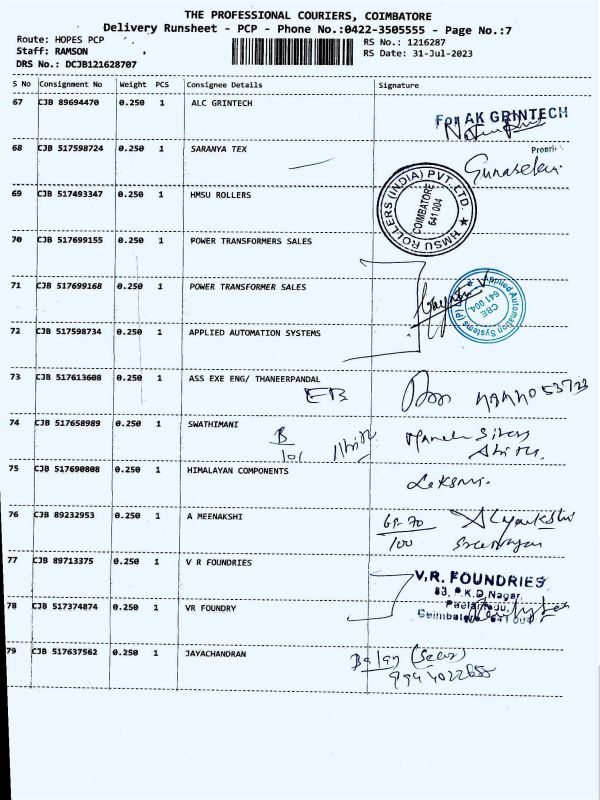 THE PROFESSIONAL COURIERS, COIMBATORE
Delivery Runsheet - PCP - Phone No.:0422-3505555 - Page No.:7
Route: HOPES PCP
RS No.: 1216287
Staff: RAMSON
RS Date: 31-Jul-2023
DRS No.: DCJB121628707
S No Consignment No Weight PCS Consignee Details Signature
67 CJB 89694470 0.250 1 ALC GRINTECH
For AK GRINTECH
68 CJB 517598724 0.250 1 SARANYA TEX
Gunasekar
69 CJB 517493347 0.250 1 HMSU ROLLERS
HMSU ROLLERS (INDIA) PVT. LTD. ★
COIMBATORE
641 004
70 CJB 517699155 0.250 1 POWER TRANSFORMERS SALES
71 CJB 517699168 0.250 1 POWER TRANSFORMER SALES
Applied Automation Systems (P)
CBE
641 004
72 CJB 517598734 0.250 1 APPLIED AUTOMATION SYSTEMS
73 CJB 517613608 0.250 1 ASS EXE ENG/ THANEERPANDAL
EB
74 CJB 517658989 0.250 1 SWATHIMANI
B
101
75 CJB 517690808 0.250 1 HIMALAYAN COMPONENTS
76 CJB 89232953 0.250 1 A MEENAKSHI
100
77 CJB 89713375 0.250 1 V R FOUNDRIES
V.R. FOUNDRIES
83, P.K.D.Nagar,
78 CJB 517374874 0.250 1 VR FOUNDRY
79 CJB 517637562 0.250 1 JAYACHANDRAN